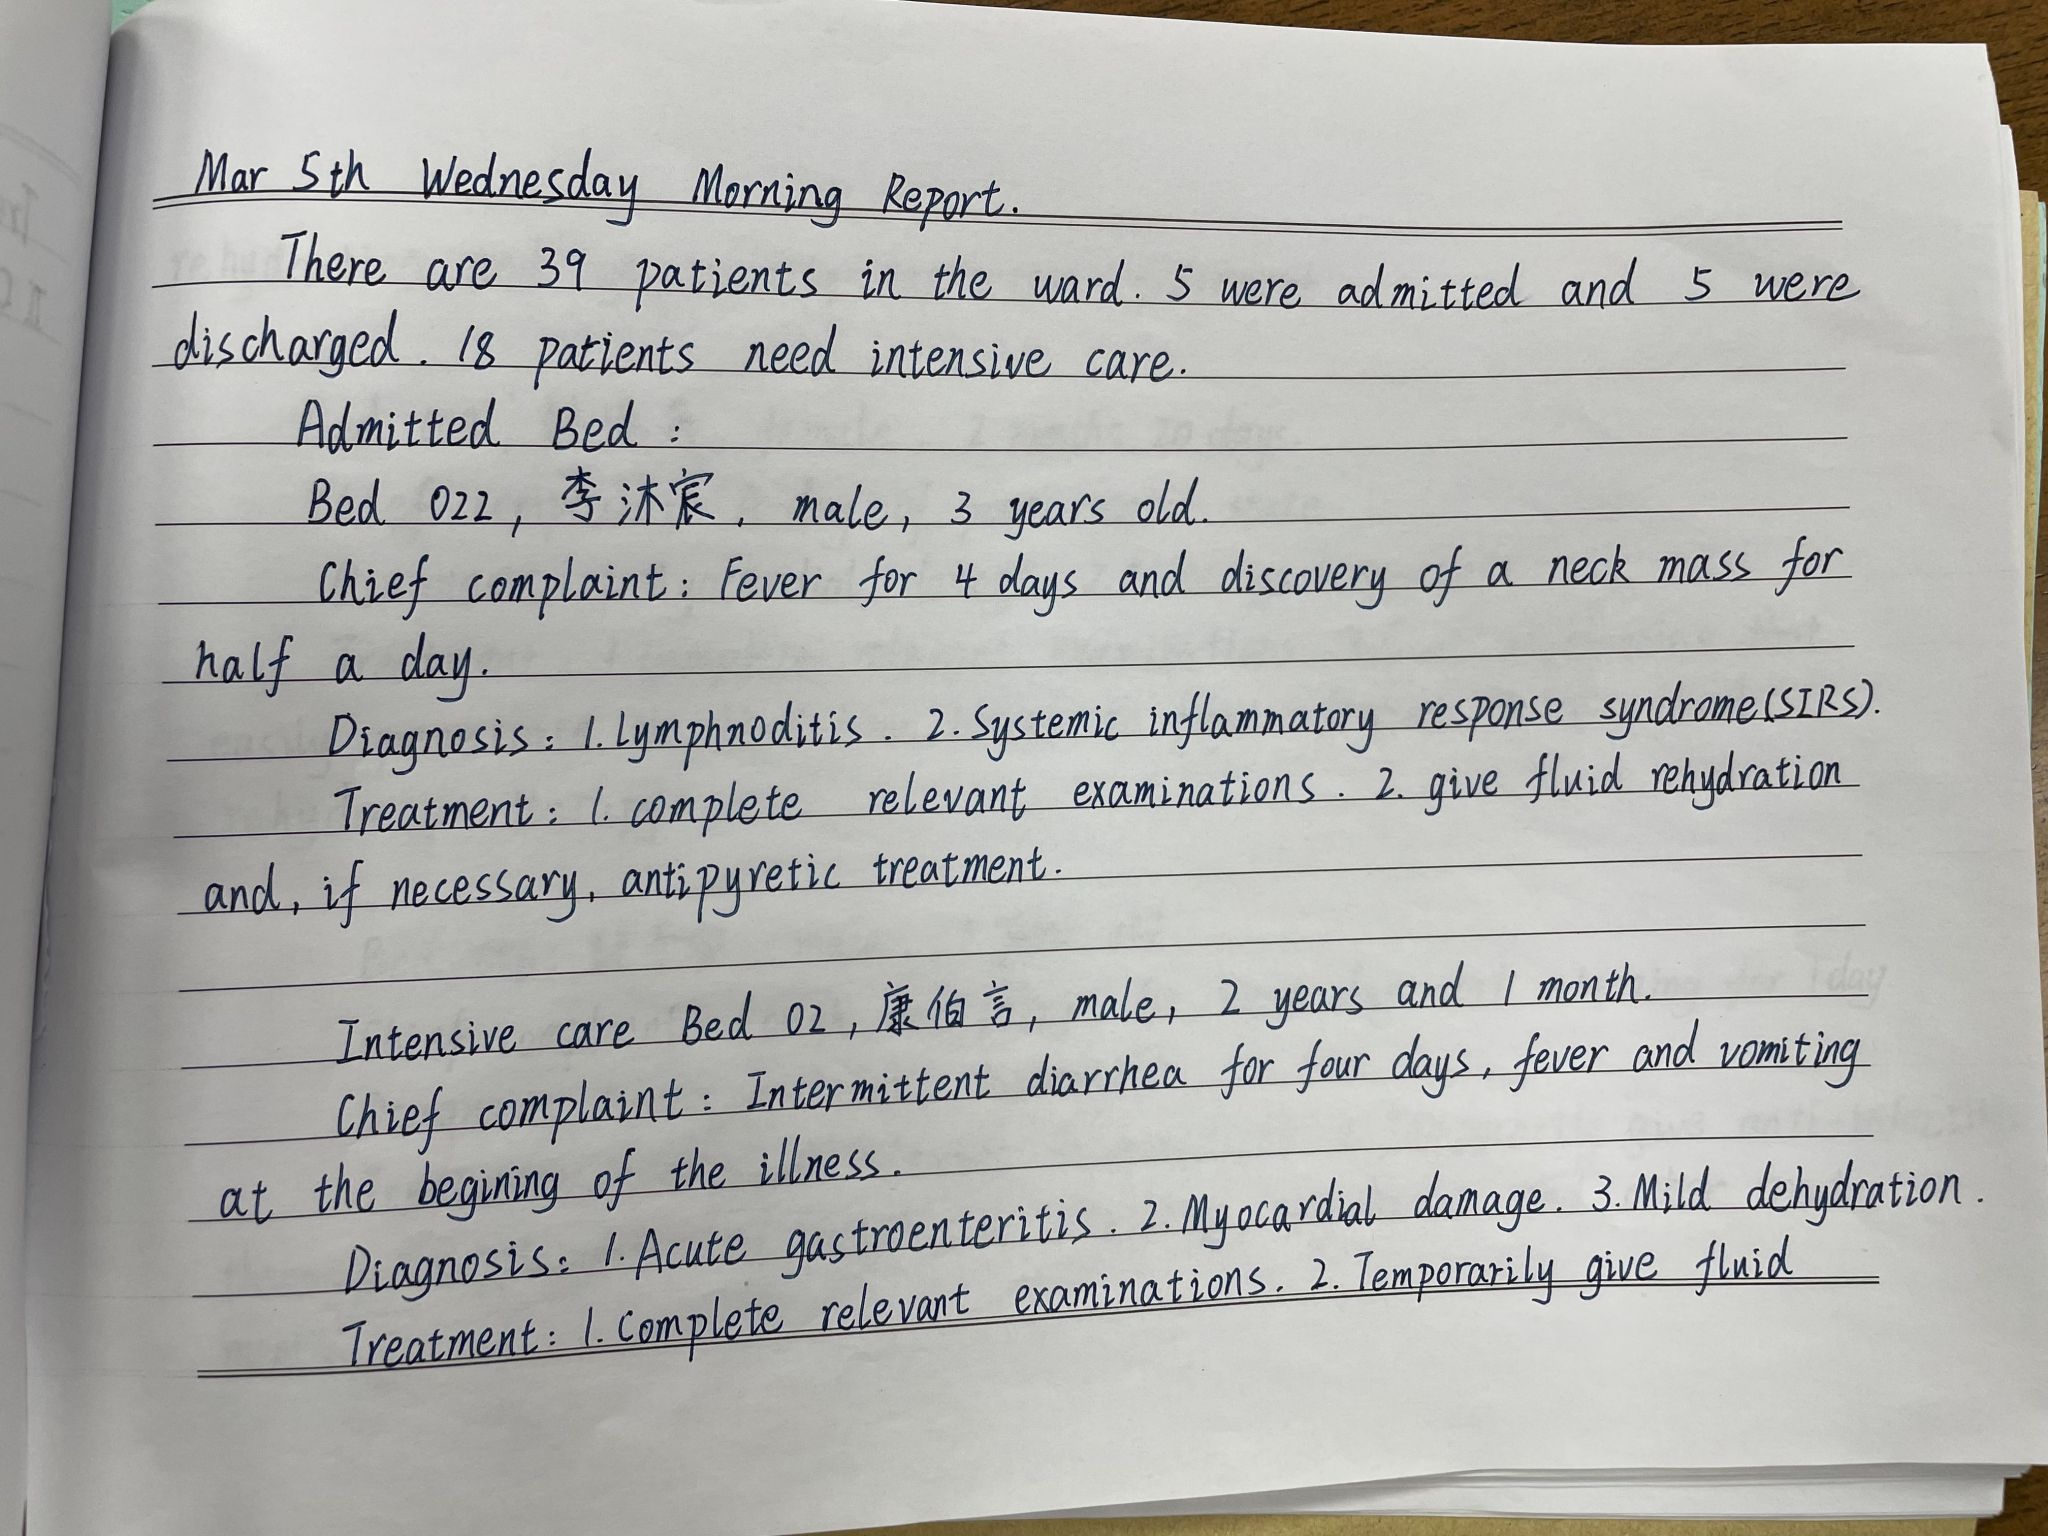 Mar 5th Wednesday Morning Report.
There are 39 patients in the ward. 5 were admitted and 5 were
discharged. 18 patients need intensive care.
Admitted Bed:
Bed 022, 李沐宸, male, 3 years old.
Chief complaint: Fever for 4 days and discovery of a neck mass for
half a day.
Diagnosis: 1. Lymphnoditis. 2. Systemic inflammatory response syndrome (SIRS).
Treatment: 1. complete relevant examinations. 2. give fluid rehydration
and, if necessary, antipyretic treatment.
Intensive care Bed 02, 康伯言, male, 2 years and 1 month.
Chief complaint: Intermittent diarrhea for four days, fever and vomiting
at the begining of the illness.
Diagnosis: 1. Acute gastroenteritis. 2. Myocardial damage. 3. Mild dehydration.
Treatment: 1. Complete relevant examinations. 2. Temporarily give fluid